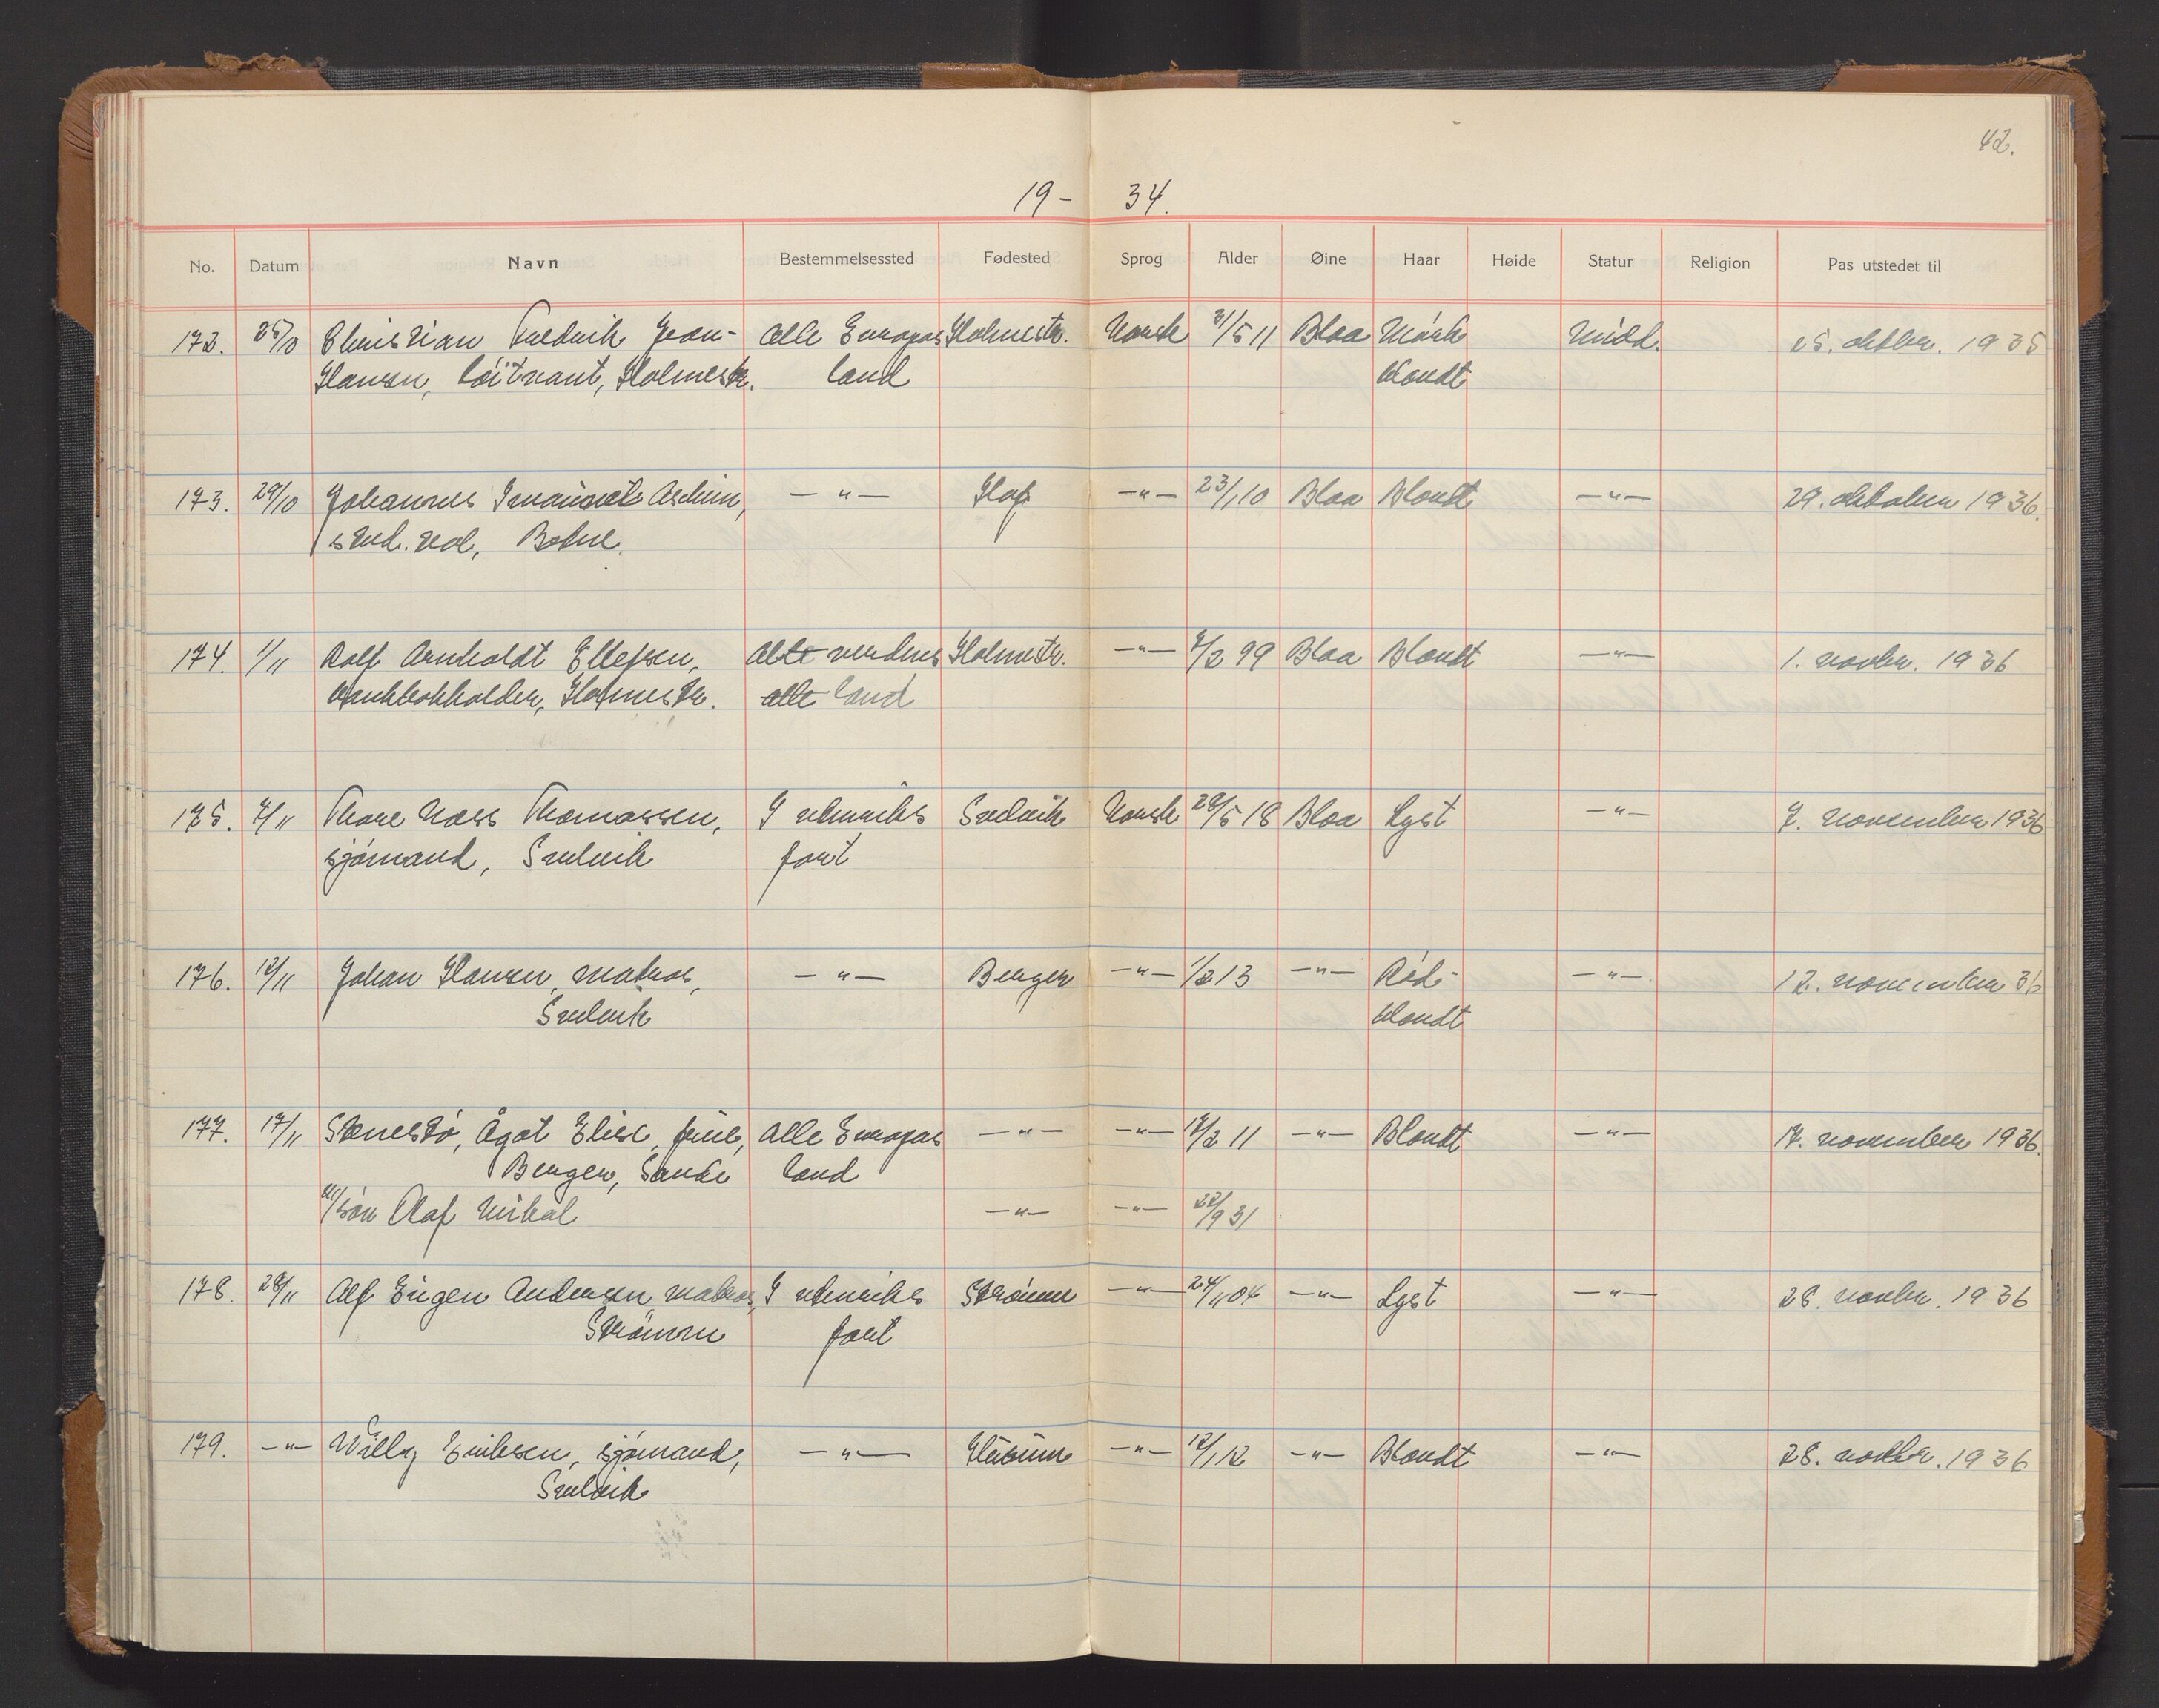 42.
19- 34.
No. Datum Navn Bestemmelsessted Fødested Sprog Alder Øine Haar Høide Statur Religion Pas utstedet til
172. 25/10 Christian Fredrik Jean- alle Europas Holmestr. Norsk 3/5 11 Blaa Mørk Midd. 25. oktbr. 1935
Hansen, løitnant, Holmestr. land blondt
173. 29/10 Johannes Askim, —"— Hof —"— 23/1 10 Blaa Blondt —"— 29. oktober 1936.
stud. real, Botne.
174. 1/11 Rolf Arnholdt Ellefsen, alle verdens Holmestr. —"— 4/2 99 Blaa Blondt —"— 1. novbr. 1936
bankbokholder, Holmestr. alle land
175. 7/11 Thore Næss Thomassen, I utenriks Svelvik Norsk 28/5 18 Blaa Lyst —"— 7. november 1936
sjømand, Svelvik fart
176. 12/11 Johan Hansen, matros, —"— Berger —"— 1/2 13 —"— Rød- —"— 12. november 36
Svelvik blondt
177. 17/11 Ågot Elise, frue, Alle Europas —"— —"— 17/2 11 —"— Blondt —"— 17. november 1936.
Berger, Sande land
m/søn Olaf Mikal —"— —"— 22/9 31
178. 28/11 Alf Eugen Andersen, matros, I utenriks Strømm —"— 24/11 04 —"— Lyst —"— 28. novbr. 1936
Strømm fart
179. —"— Willy Eriksen, sjømand, —"— Hurum —"— 12/1 12 —"— Blondt —"— 28. novbr. 1936
Svelvik